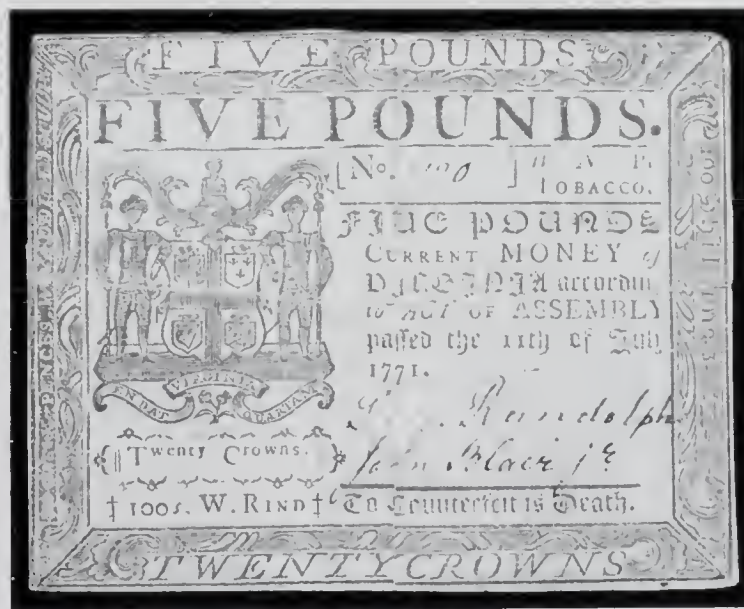 FIVE POUNDS
FIVE POUNDS.
[No. ]
TOBACCO.
FIVE POUNDS
CURRENT MONEY of
VIRGINIA accordin
to ACT OF ASSEMBLY
passed the 11th of July
1771.
VIRGINIA
EN DAT QUARTAM
Randolph
John Blair jr
Twenty Crowns.
† 100s. W. RIND †
To Counterfeit is Death.
TWENTY CROWNS